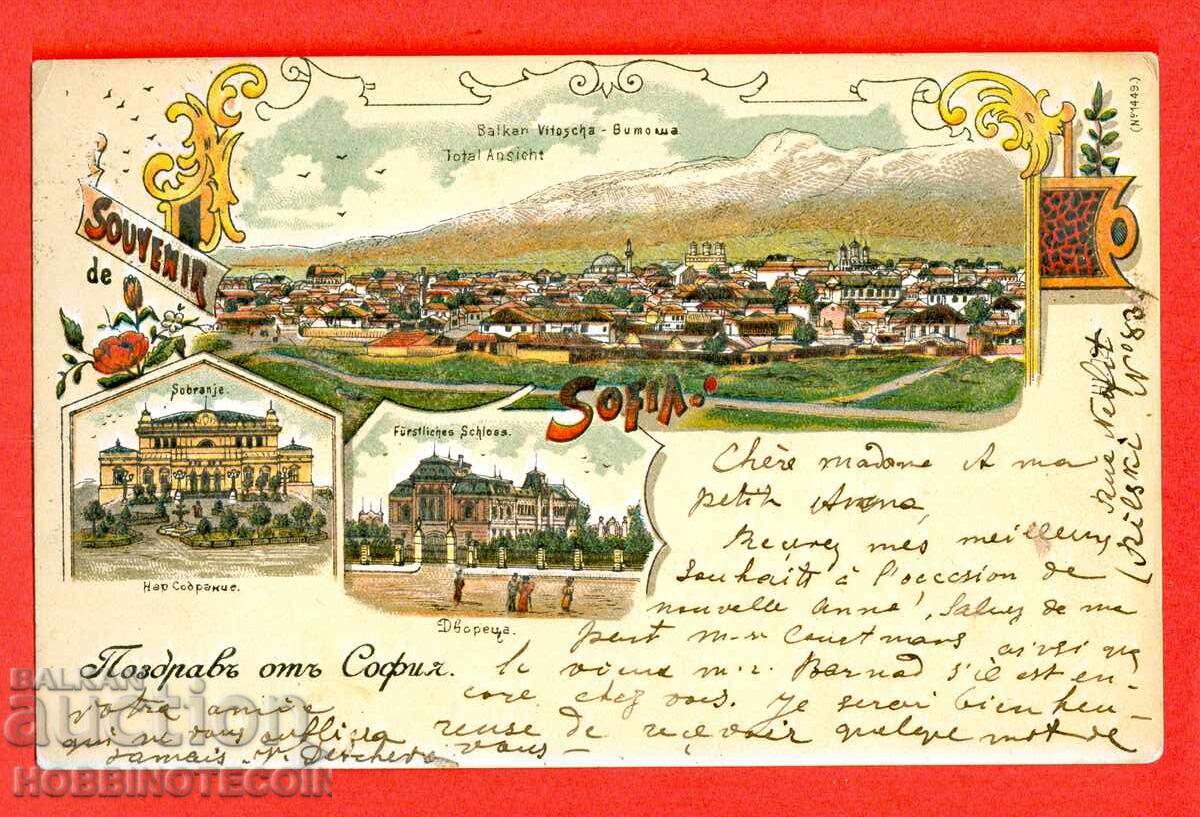 (Nº 1449.)
Balkan Vitoscha - Витоша
Total Ansicht
SOUVENIR
de
SOFIA.
Sobranje.
Нар Собрание.
Fürstliches Schloss.
Двореца.
Поздравъ отъ София.
Chère madame et ma
petite
Recevez mes meilleurs
souhaits à l'occasion de
nouvelle Anné! Saluez de ma
part m-r ainsi que
le vieux m-r. Barnad s'il est en-
core chez vous. Je serai bien heu-
reuse de recevoir quelque mot de
vous
votre amie
qui ne vous oubliera
jamais
Rue
(Rilski Nº 83
BALKAN
auction
HOBBINOTECOIN